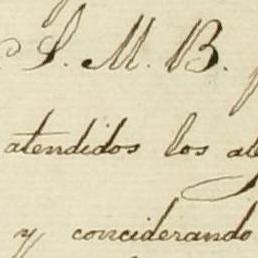 S. M. B.
atendidos los
y conciderando